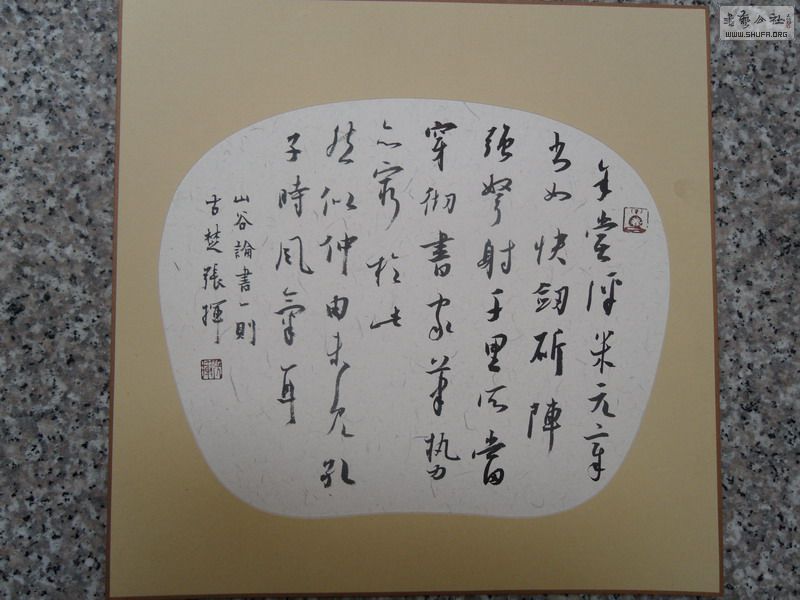 余嘗評米元章
書如快劍斫陣
強弩射千里所當
穿徹書家筆勢
亦窮於此
然似仲由未見孔
子時風氣耳
山谷論書一則
古楚張揮
書藝公社
WWW.SHUFA.ORG